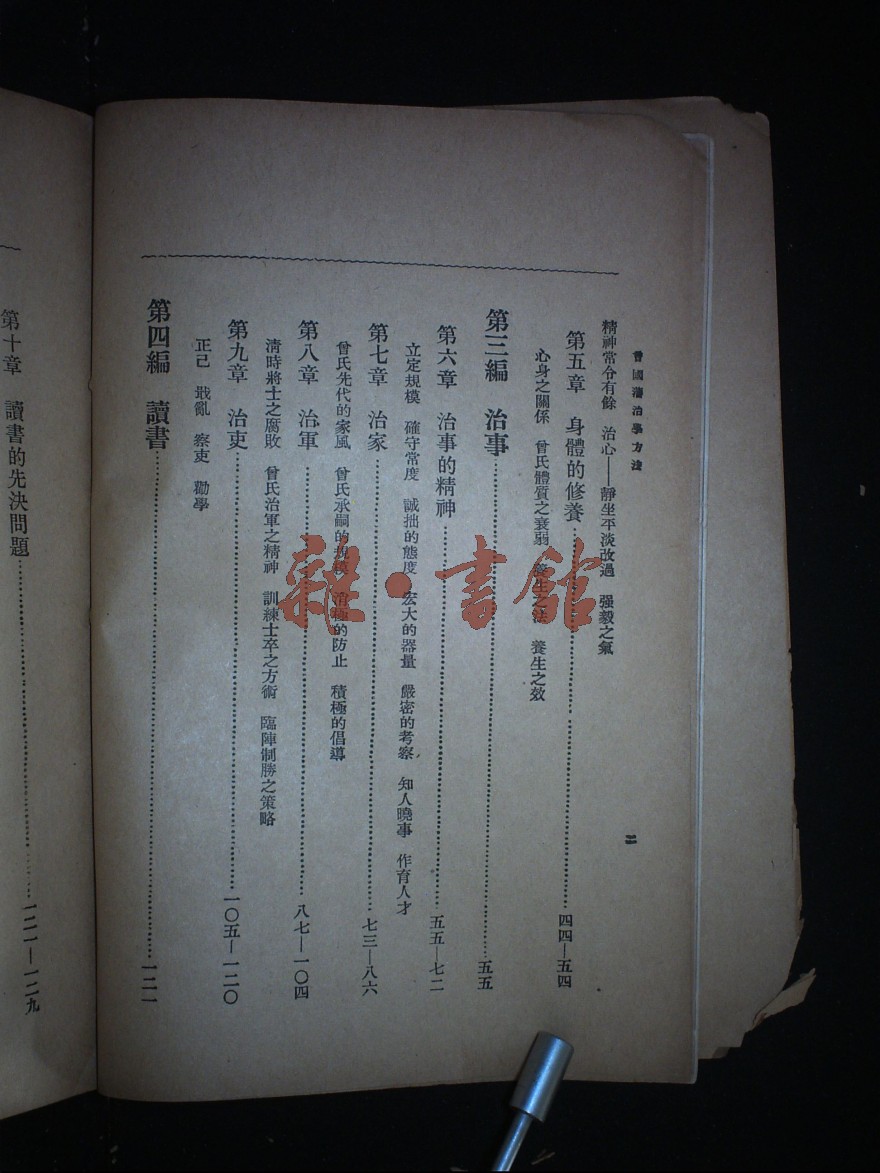 曾國藩治學方法
二
精神常令有餘　治心——靜坐平淡改過　强毅之氣
第五章　身體的修養………四四—五四
心身之關係　曾氏體質之衰弱　養生之法　養生之效
第三編　治事………五五
第六章　治事的精神………五五—七二
立定規模　確守常度　誠拙的態度　宏大的器量　嚴密的考察　知人曉事　作育人才
第七章　治家………七三—八六
曾氏先代的家風　曾氏承嗣的規模　消極的防止　積極的倡導
第八章　治軍………八七—一〇四
清時將士之腐敗　曾氏治軍之精神　訓練士卒之方術　臨陣制勝之策略
第九章　治吏………一〇五—一二〇
正己　戢亂　察吏　勸學
第四編　讀書………一二一
第十章　讀書的先決問題………一二一—一二九
雜·書館